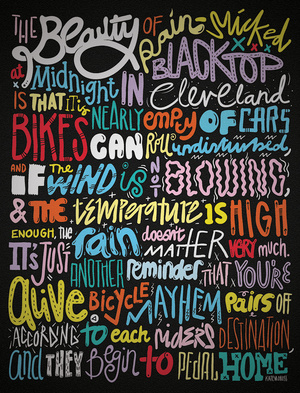 THE Beauty OF rain-slicked
BLACKTOP
at Midnight IN Cleveland
IS THAT it is NEARLY empty OF CARS
BIKES CAN Roll undisturbed,
AND IF the WIND is NOT BLOWING,
& THE temperature IS HIGH
ENOUGH, THE rain doesn't MATTER very much.
IT'S JUST ANOTHER reminder THAT YOU'RE
alive BICYCLE MAYHEM pairs OFF
ACCORDING to each rider's DESTINATION
and THEY Begin to PEDAL HOME